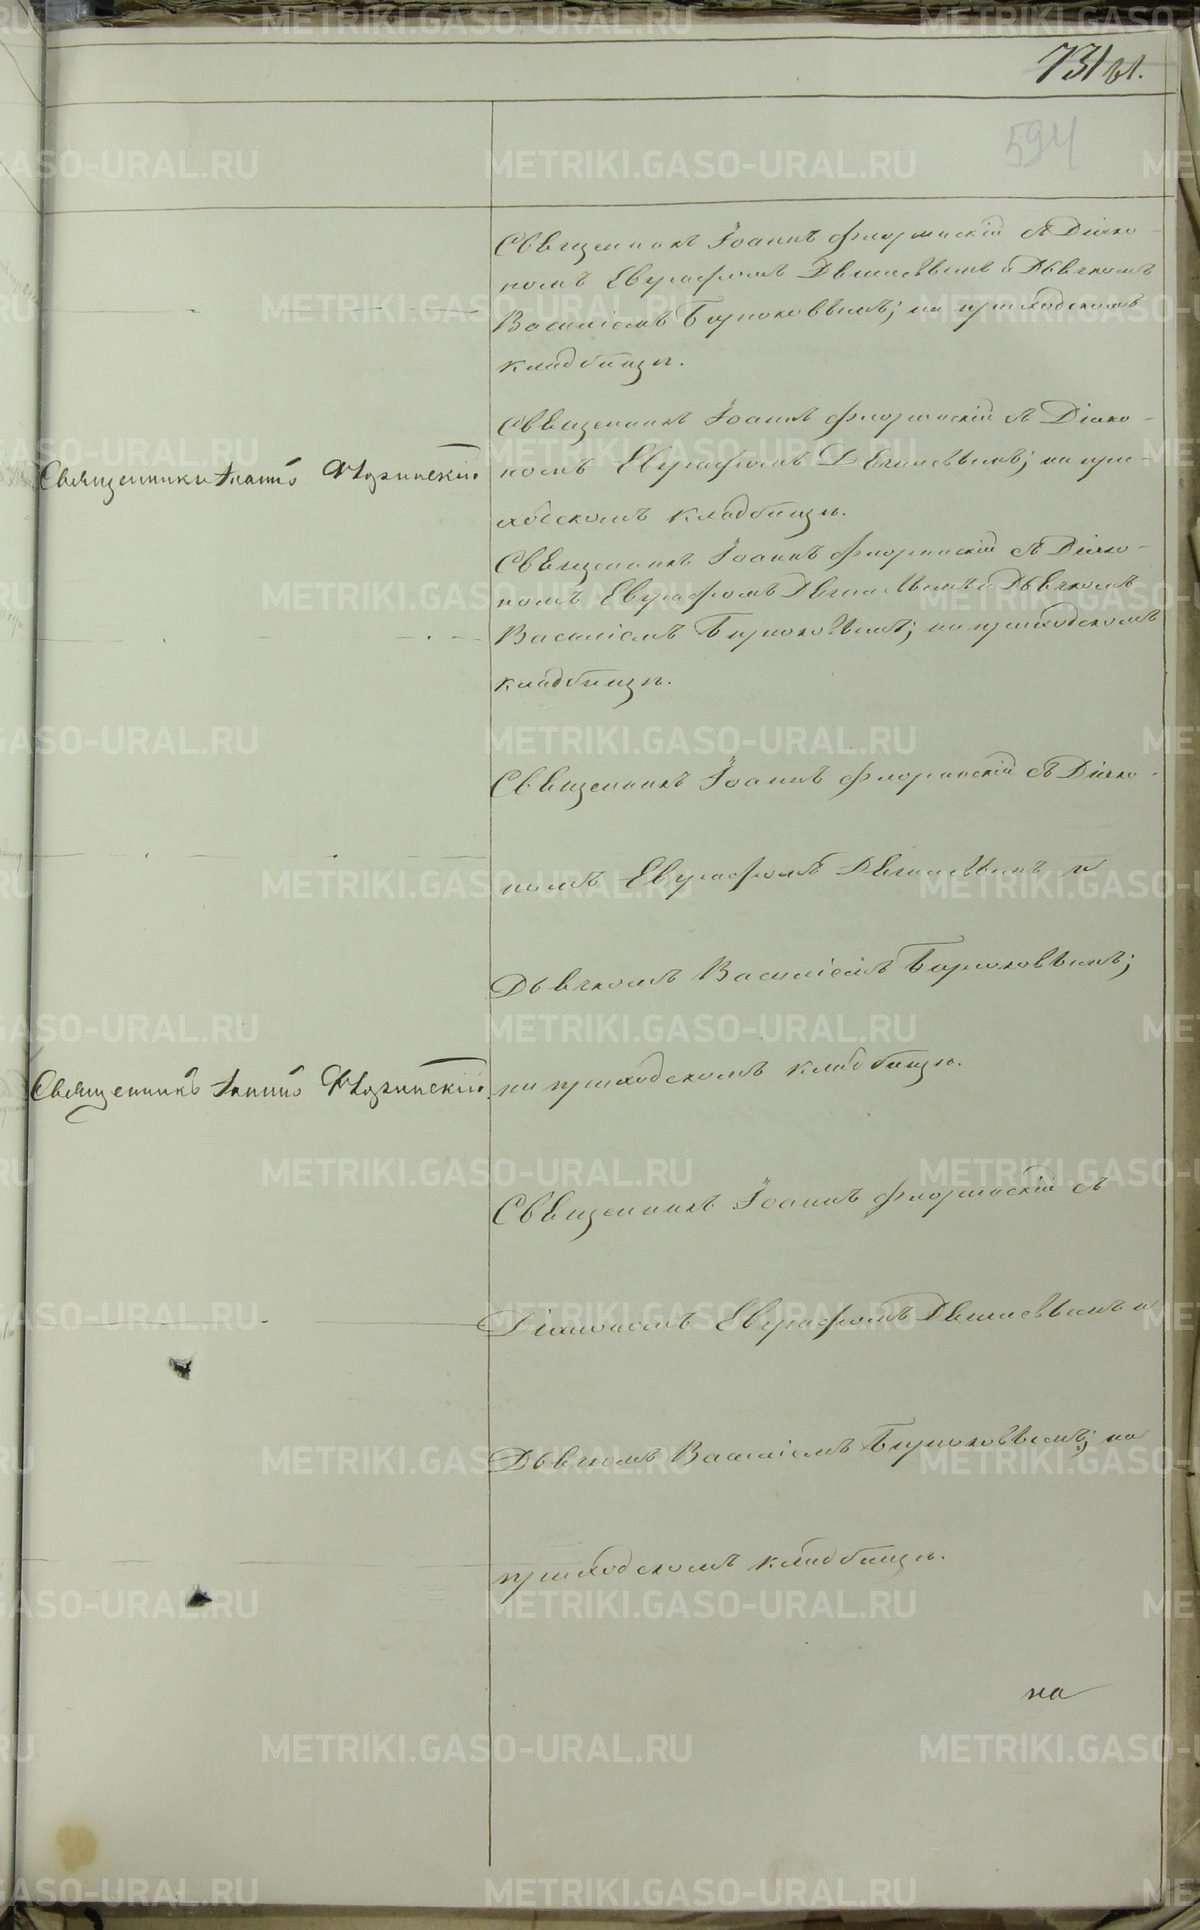 731 ы.
594
Священникъ Іоаннъ Флоринскій съ Діако-
номъ Евграфомъ Двинаевымъ и Дьячкомъ
Василіемъ Бирюковымъ; на приходскомъ
кладбищѣ.
Священникъ Іоаннъ Флоринскій съ Діако-
номъ Евграфомъ; на при-
ходскомъ кладбищѣ.
Священникъ Іоаннъ Флоринскій
Священникъ Іоаннъ Флоринскій съ Діако-
номъ Евграфомъ и Дьячкомъ
Василіемъ Бирюковымъ; на приходскомъ
кладбищѣ.
Священникъ Іоаннъ Флоринскій съ Діако-
номъ Евграфомъ и
Дьячкомъ Василіемъ Бирюковымъ;
на приходскомъ кладбищѣ.
Священникъ Іоаннъ Флоринскій
Священникъ Іоаннъ Флоринскій съ
Діакономъ Евграфомъ и
Дьячкомъ Василіемъ Бирюковымъ; на
приходскомъ кладбищѣ.
на
METRIKI.GASO-URAL.RU